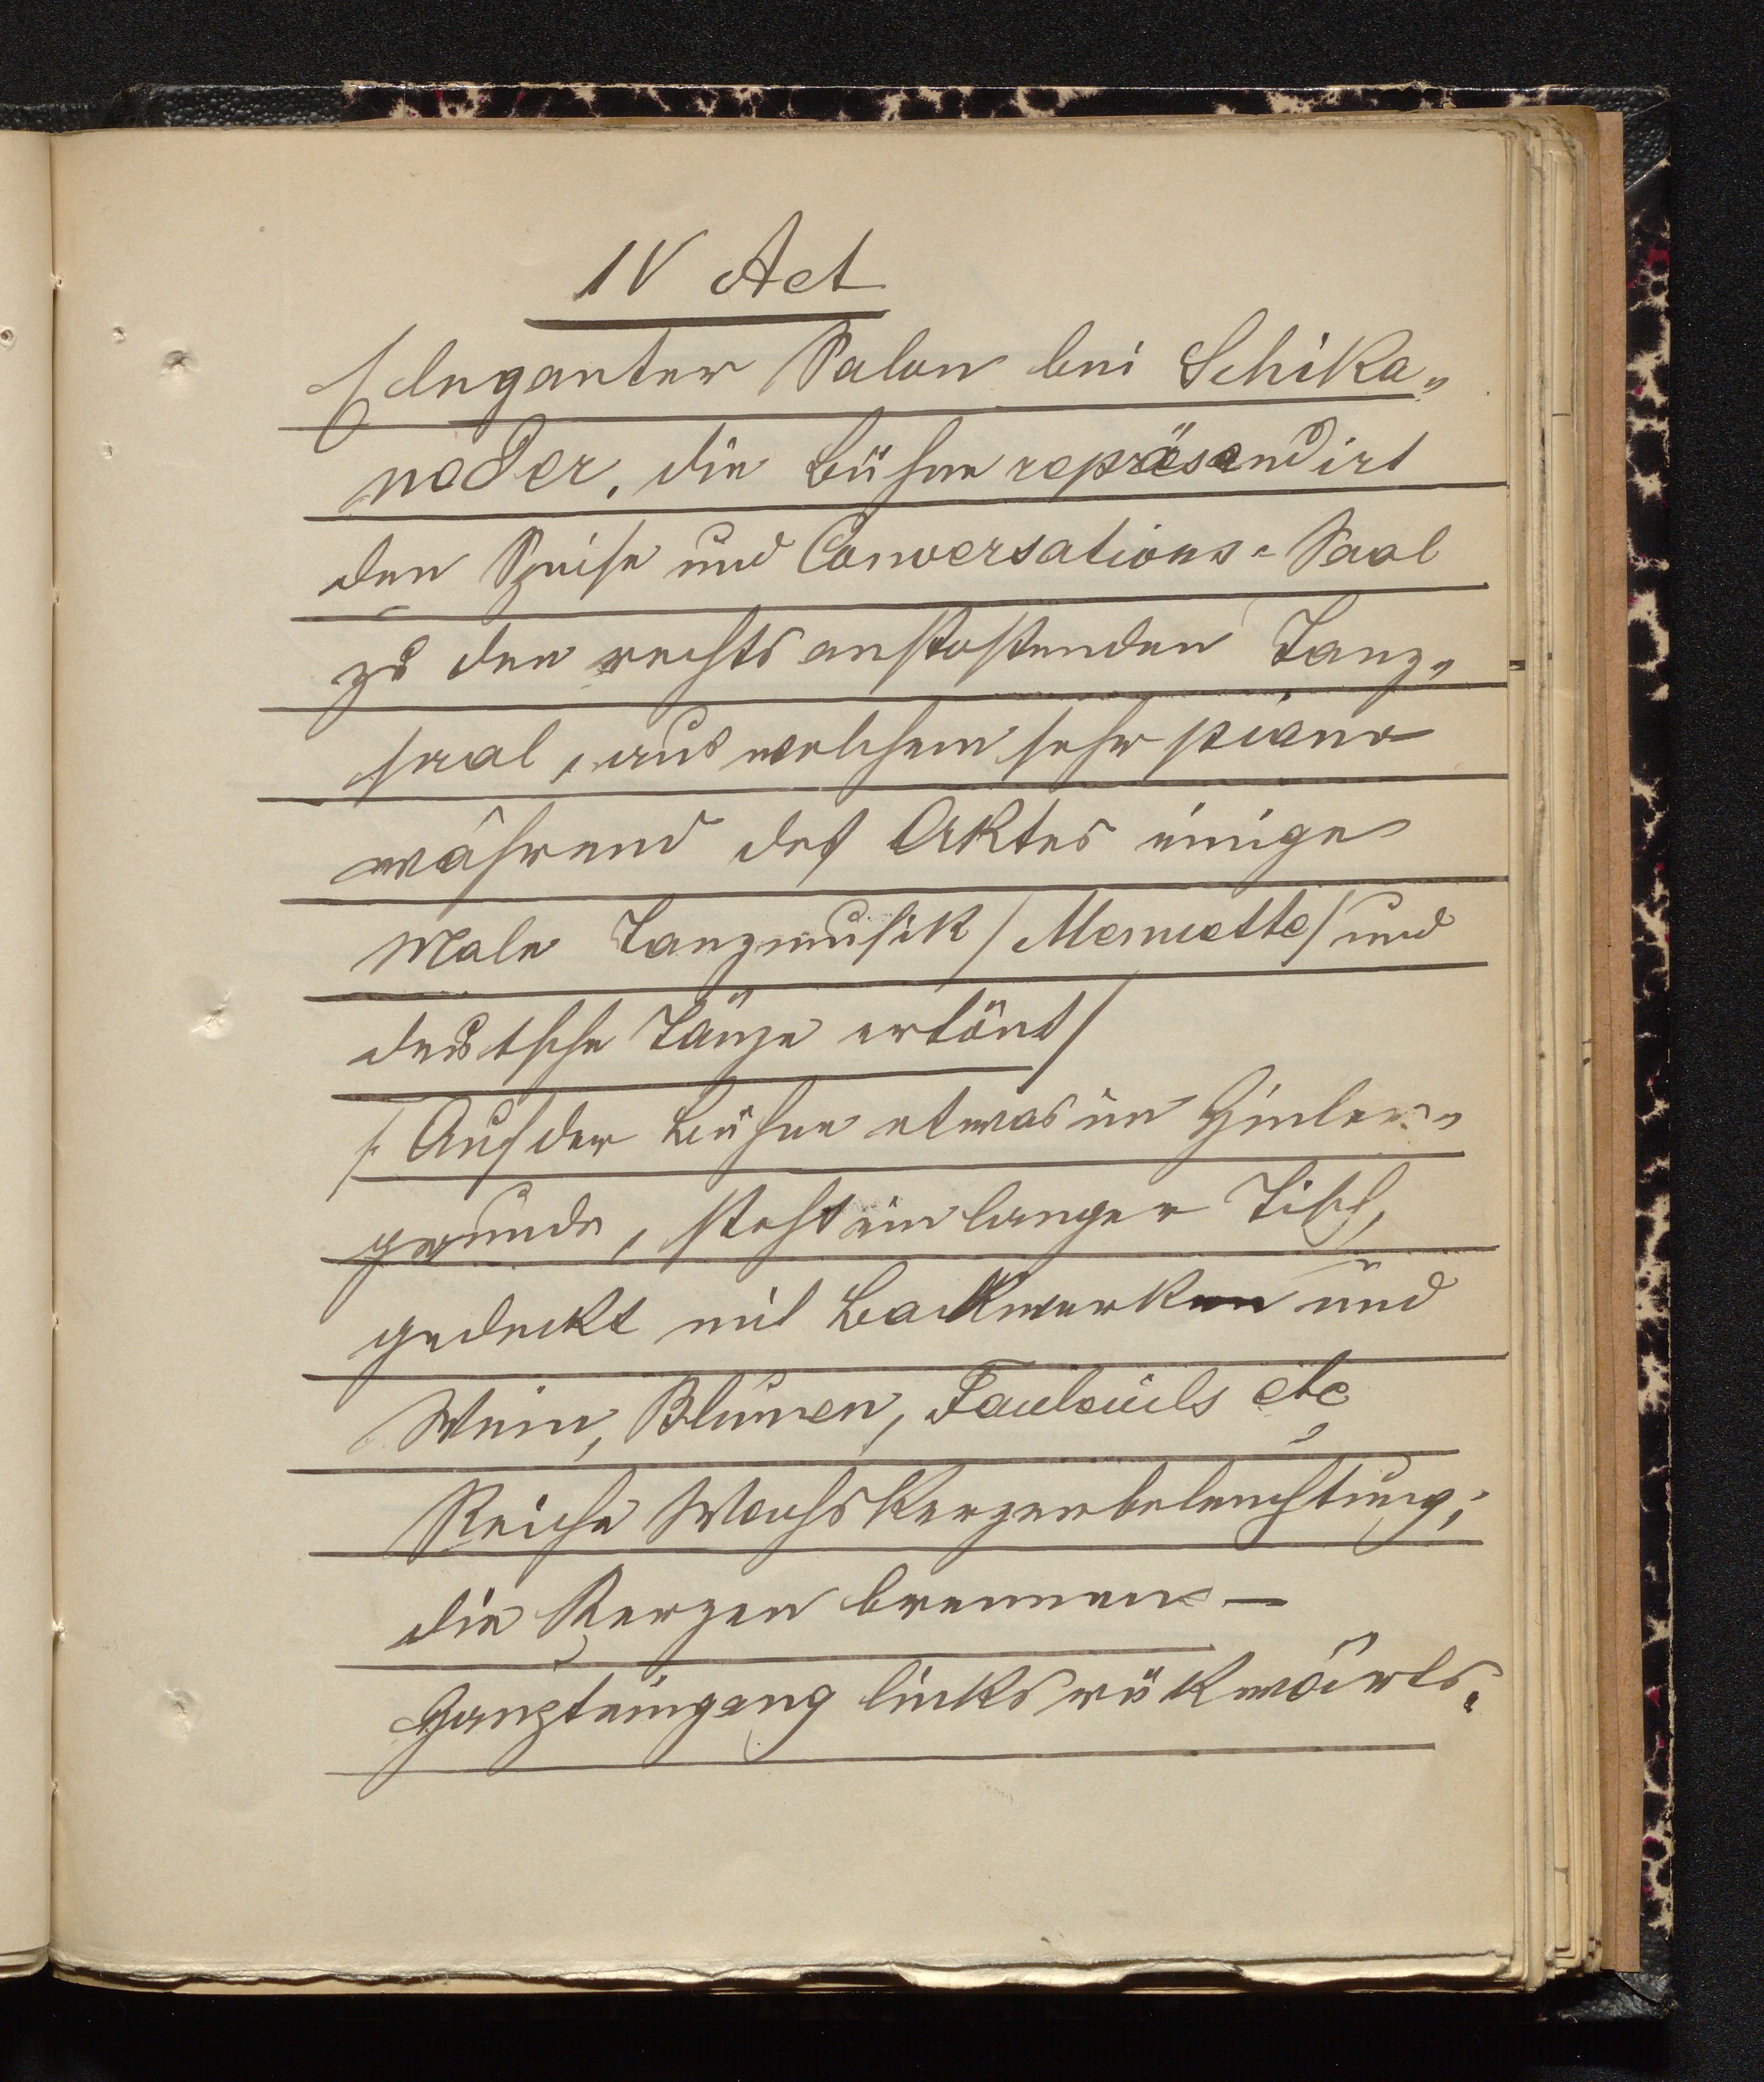 IV Act
/Eleganter Salon bei Schika„
neder. die Bühne repräsendirt
den Speise und Conversations=Saal
zu den rechts anstoßenden Tanz„
saal, aus welchem sehr piano
während des Aktes einige
Male Tanzmusik /Menuette/ und
deutsche Tänze ertönt/
/. Auf der Bühne etwas im Hinter„
grunde, steht ein langer Tisch,
gedeckt mit Backwerken und
Wein, Blumen, Fauteuils etc
Reiche Wachskerzenbeleuchtung;
die Kerzen brennen —
links rükwärts.